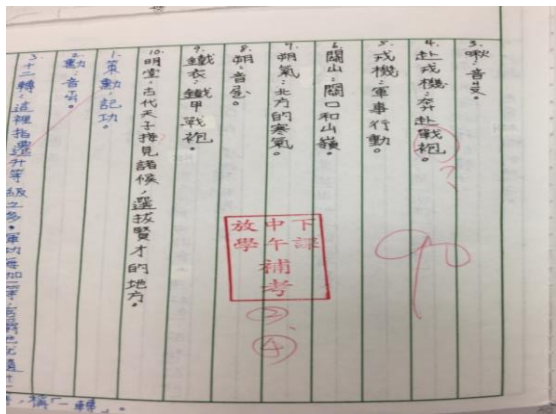 3. 啾:音ㄐ。
4. 赴戎機:奔赴戰袍。
5. 戎機:軍事行動。
6. 關山:關口和山嶺。
7. 朔氣:北方的寒氣。
8. 朔:音
9. 鐵衣:鐵甲戰袍。
10. 明堂:古代天子接見諸候,選拔賢才的地方。
1. 策勳:記功。
2. 勳:音
3. 十二轉:這裡指 升等級之多。軍功每加一等,
稱一轉。
90
下課
中午
放學
補考
②、④